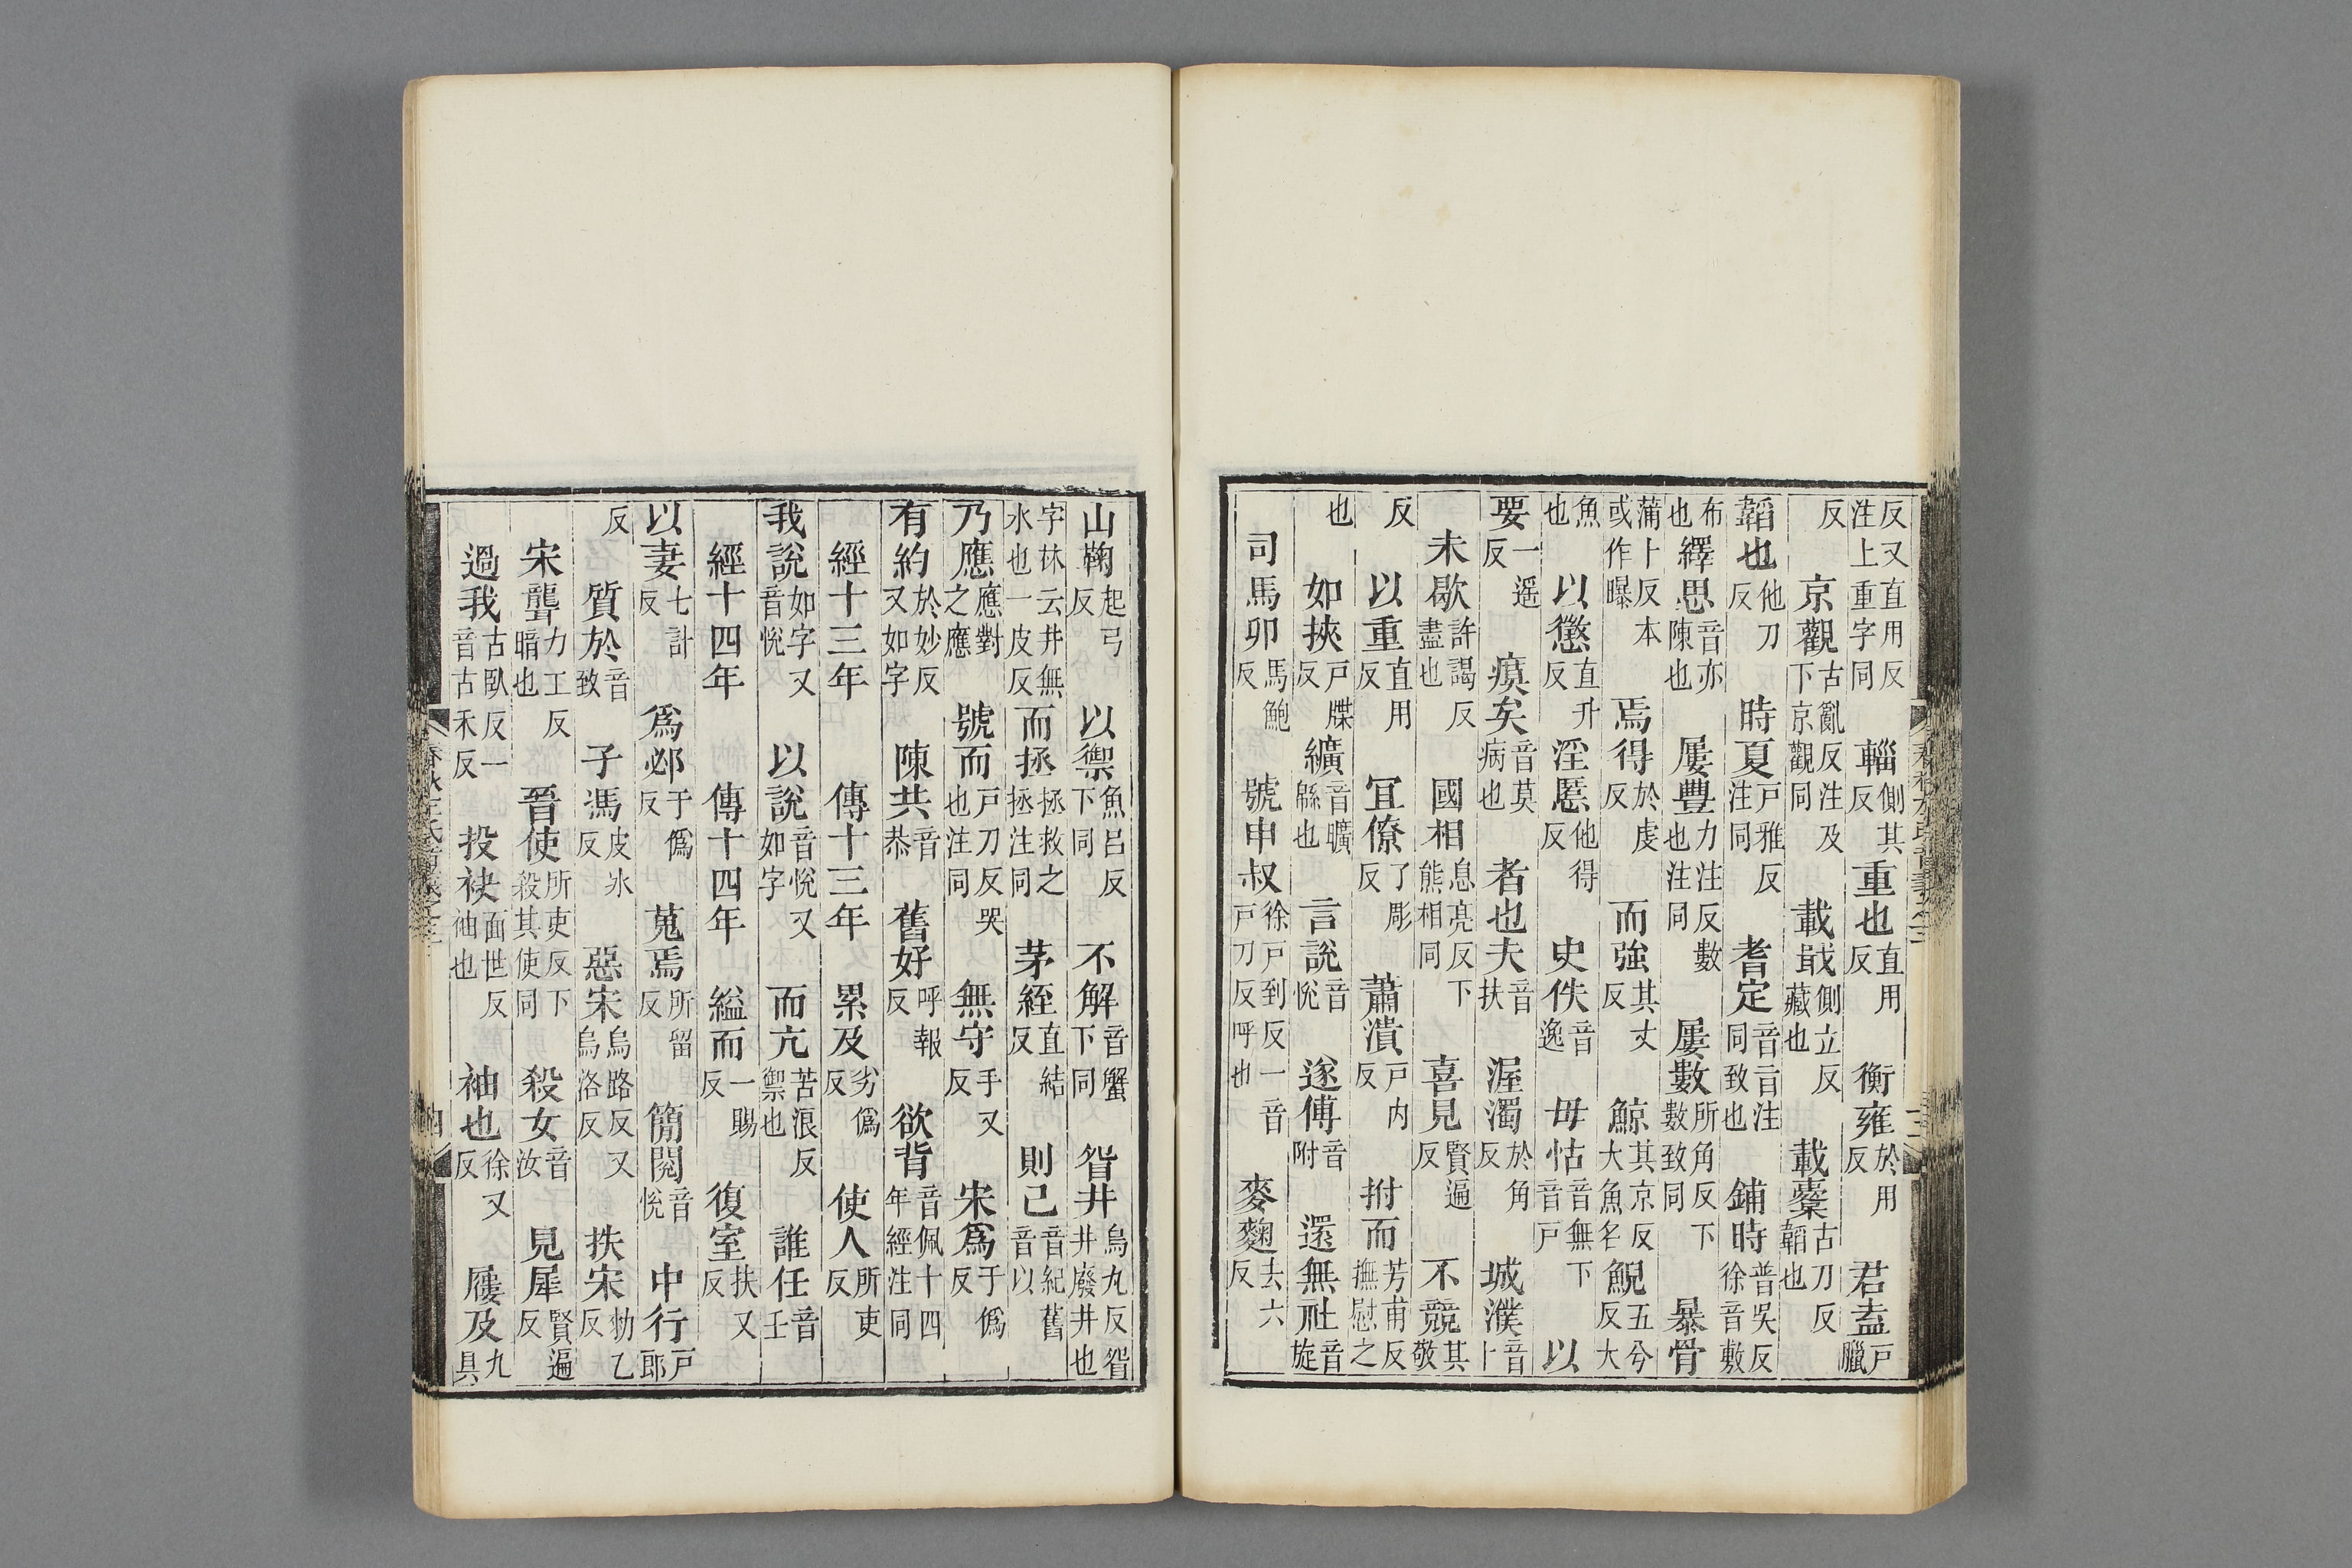 反又直用反注上重字同 輜側其反 重也直用反 衡雍於用反 君盍戶臘
反 京觀古亂反注及下京觀同 載戢側立反藏也 載櫜古刀反韜也
韜也他刀反 時夏戶雅反注同 耆定音旨注同致也 鋪時普吳反徐音敷
布也 繹思音亦陳也 屢豐力注反數也注同 屢數所角反下數致同 暴骨
蒲卜反本或作曝 焉得於虔反 而強其丈反 鯨其京反大魚名 鯢五兮反大
魚也 以懲直升反 淫慝他得反 史佚音逸 毋怙音無下音戶 以
要一遥反 瘼矣音莫病也 者也夫音扶 渥濁於角反 城濮音卜
未歇許謁反盡也 國相息亮反下熊相同 喜見賢遍反 不競其敬
反 以重直用反 宜僚了彫反 蕭潰戶內反 拊而芳甫反撫慰之
也 如挾戶牒反 纊音曠緜也 言說音悅 遂傅音附 還無社音旋
司馬卯馬鮑反 號申叔徐戶到反一音戶刀反呼也 麥麴去六反
山鞠起弓反 以禦魚呂反下同 不解音蟹下同 眢井烏丸反眢井廢井也
字林云井無水也一皮反 而拯拯救之拯注同 茅絰直結反 則己音紀舊音以
乃應應對之應 號而戶刀反哭也注同 無守手又反 宋爲于僞反
有約於妙反又如字 陳共音恭 舊好呼報反 欲背音佩十四年經注同
經十三年 傳十三年 累及劣僞反 使人所吏反
我說如字又音悅 以說音悅又如字 而亢苦浪反禦也 誰任音壬
經十四年 傳十四年 縊而一賜反 復室扶又反
以妻七計反 爲邲于僞反 蒐焉所留反 簡閱音悅 中行戶郎
反 質於音致 子馮皮氷反 惡宋烏路反又烏洛反 抶宋勑乙反
宋聾力工反暗也 晉使所吏反下殺其使同 殺女音汝 見犀賢遍反
過我古臥反一音古禾反 投袂面世反袖也 袖也徐又反 屨及九具